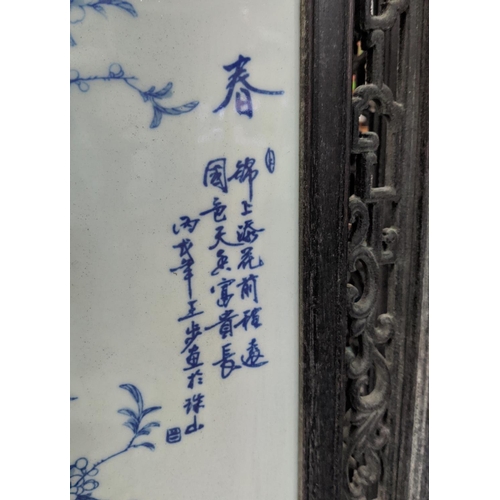 春
錦上添花前程遠
國色天香富貴長
丙戌年王步畫於珠山